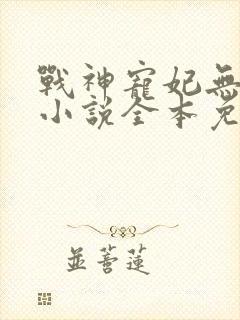 戰神寵妃無
小說全本免
並蒂蓮